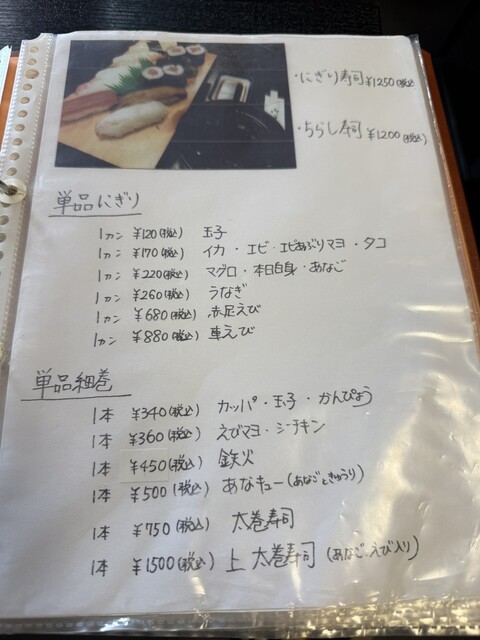 ・にぎり寿司 ¥1250(税込
・ちらし寿司 ¥1200(税込)
単品にぎり
1カン ¥120(税込) 玉子
1カン ¥170(税込) イカ・エビ・エビあぶりマヨ・タコ
1カン ¥220(税込) マグロ・本日白身・あなご
1カン ¥260(税込) うなぎ
1カン ¥680(税込) 赤足えび
1カン ¥880(税込) 車えび
単品細巻
1本 ¥340(税込) カッパ・玉子・かんぴょう
1本 ¥360(税込) えびマヨ・シーチキン
1本 ¥450(税込) 鉄火
1本 ¥500(税込) あなキュー(あなごときゅうり)
1本 ¥750(税込) 太巻寿司
1本 ¥1500(税込) 上 太巻寿司 (あなご・えび入り)